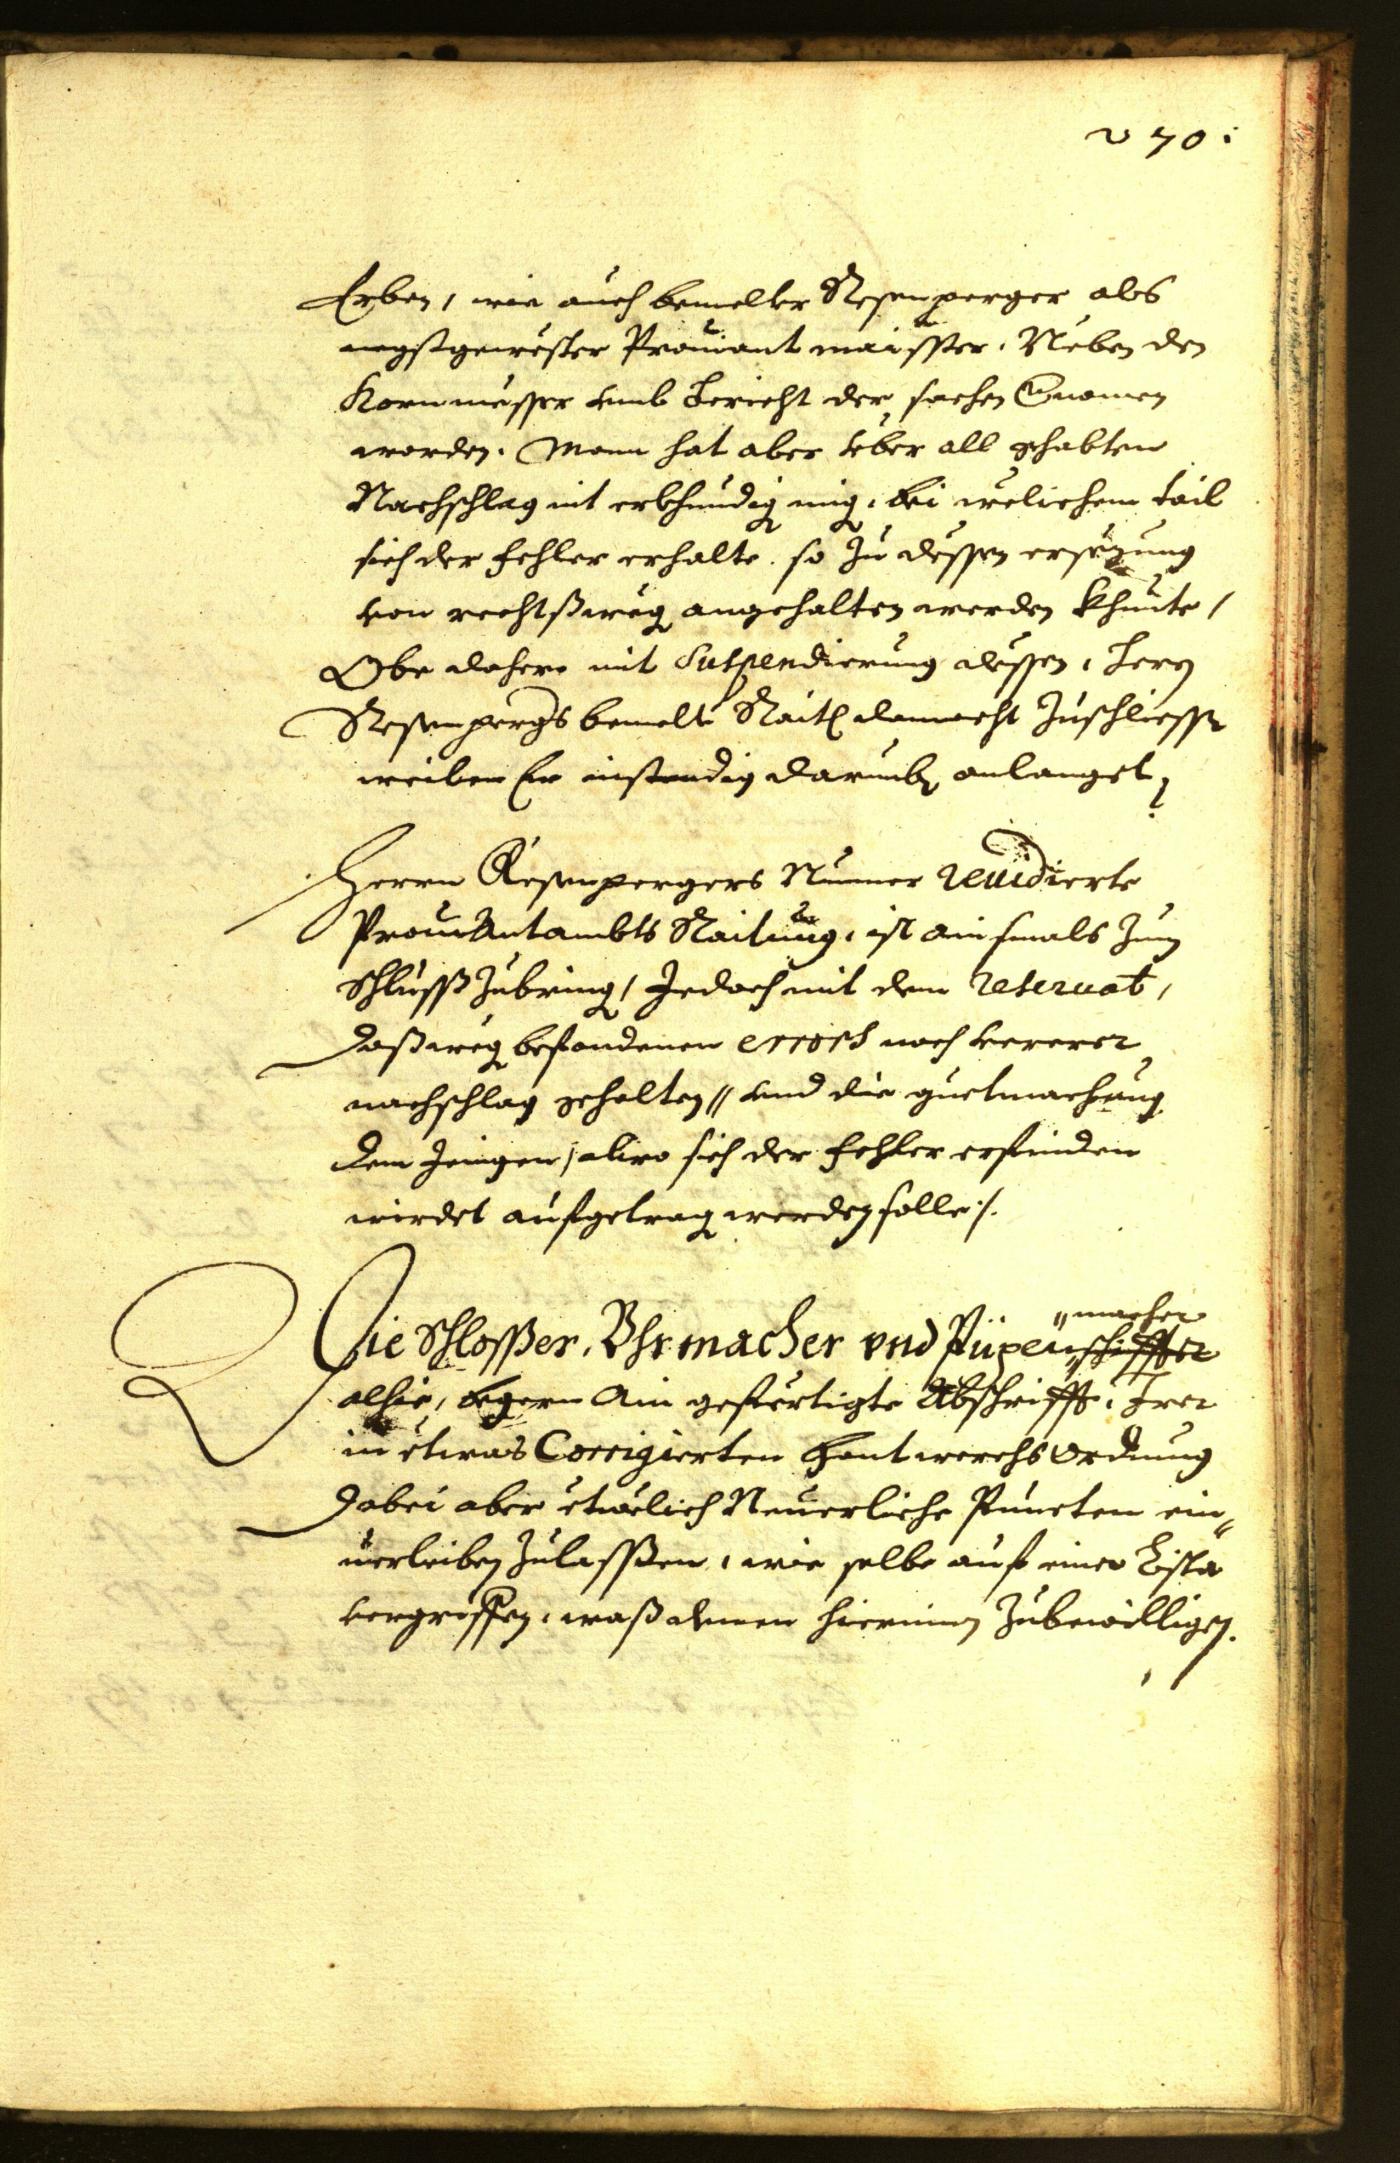 270.
Erben, wie auch bemelter Resenperger als
negstgewester Prouiant maisster. Neben den
Kornmesser vmb Bericht der sachen
worden. Mann hat aber vber all gehabten
Nachschlag nit erkhundig mig, bei welichem tail
sich der fehler erhalte. so zu dessen ersezung
von rechtßweg angehalten werden khunte,
Obe dahero mit Suspendierung dessen, Herrn
Resenpergers bemelte Rait damocht zuschliessen
weilen Er instendig darumb anlanget,
Herrn Resenpergers Numer reuidierte
Prouiantambts Raitung, ist ainsmals zum
Schlusß zubring, Jedoch mit dem reseruat,
Daß weg befondenen errors noch verrer
nachschlag gehalten, vnd die guetmachung
dem Jenigen, alwo sich der fehler erfinden
wirdet aufgetrag werden solle.
macher
Die Schlosßer, Vhrmacher vnd Püxenschiffter
alhie, begern Ain gefertigte Abschrifft, Irer
in etwas Corrigierten Hantwerchs ordnung
Dabei aber etwelich Neuerliche Puncten ein-
uerleiben zulasßen, wie selbe auf einer Lista
vergriffen, waß denen hierinnen zubewilligen.